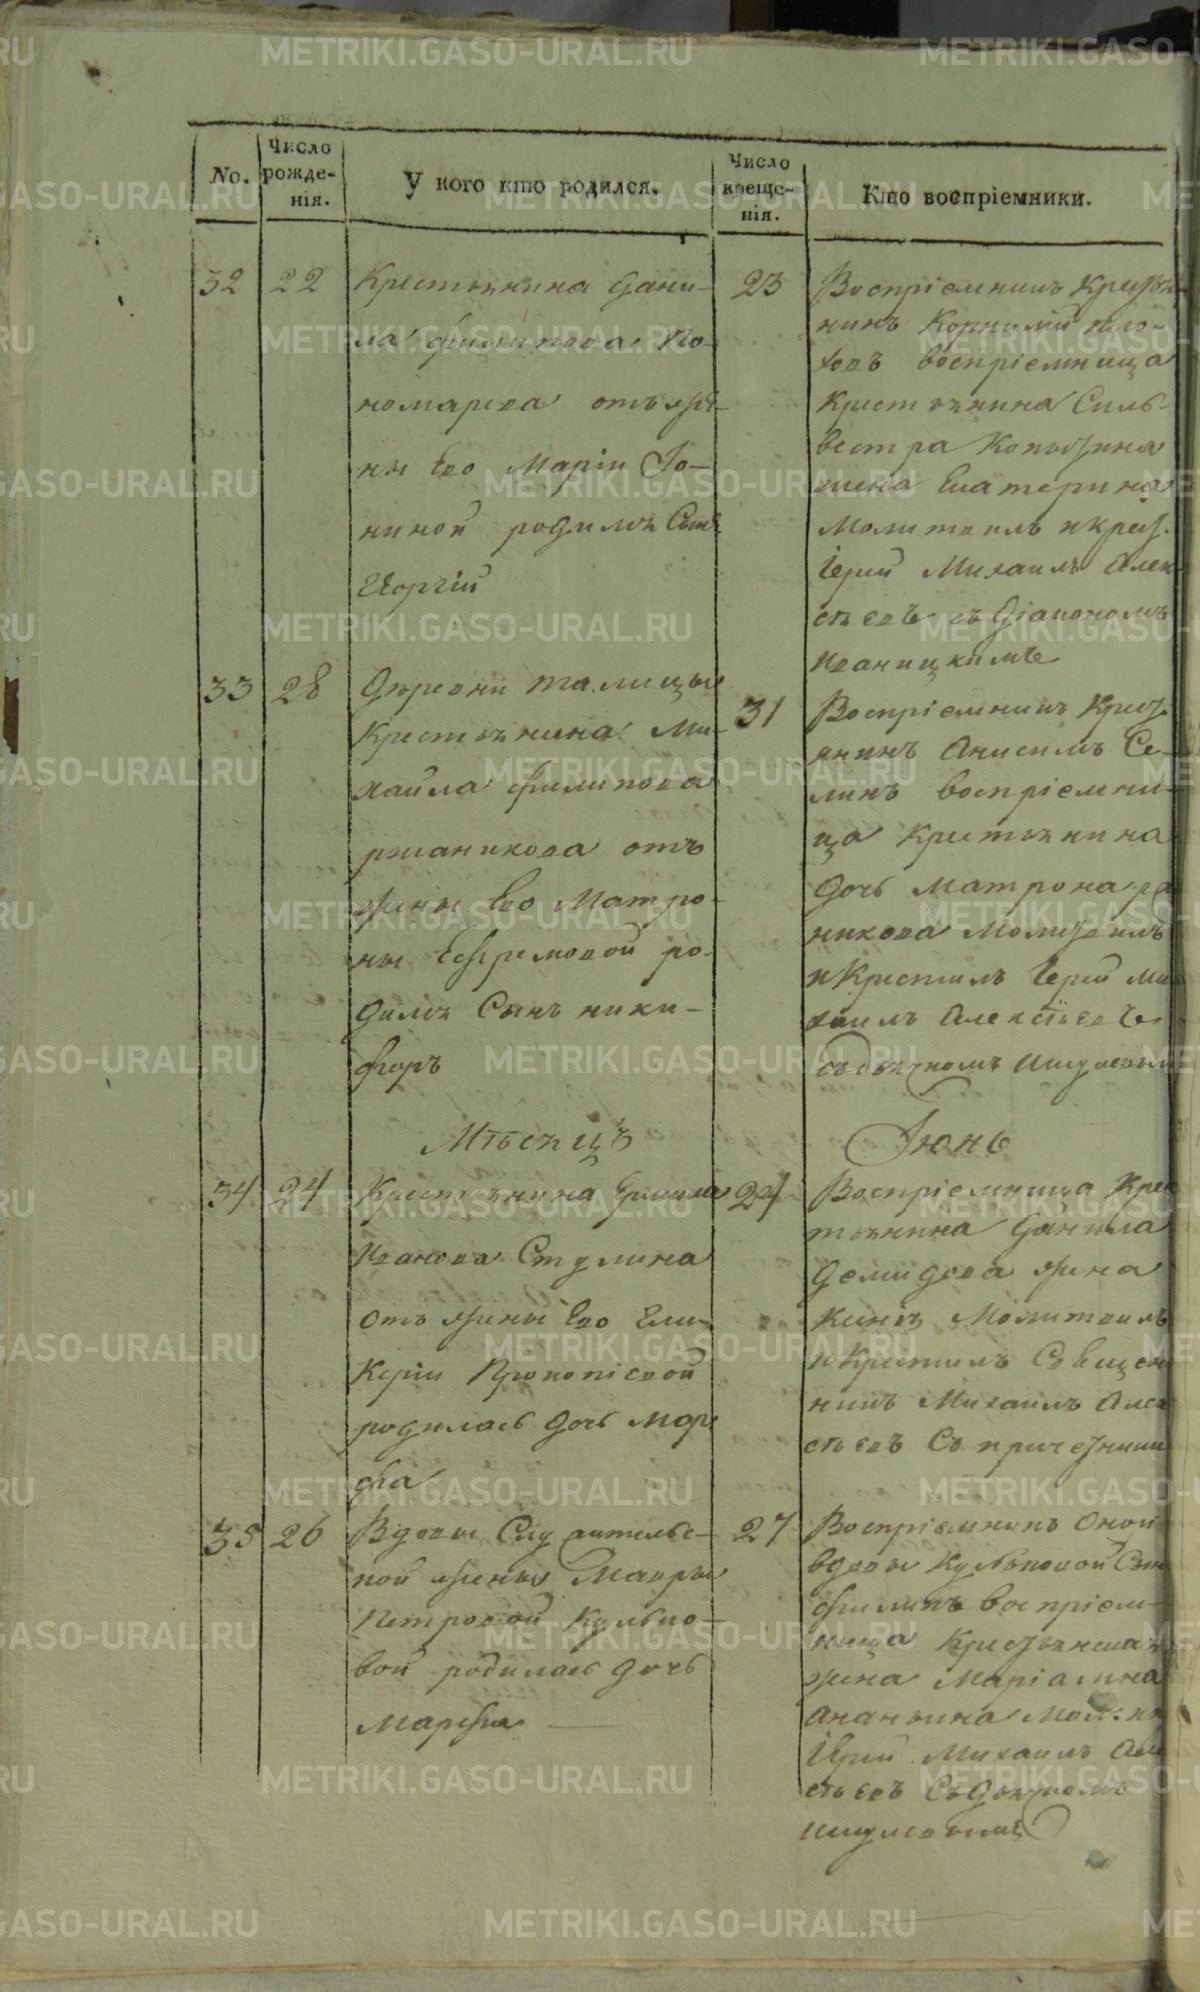 No.
Число
рожде-
нія.
У кого кто родился.
Число
креще-
нія.
Кто воспріемники.
32
22
Крестьянина Дани-
ла Филипова По-
номарева отъ же-
ны Его Маріи Іо-
ниной родился Сынъ
Георгій
23
Воспріемникъ
нинъ Корнилій
воспріемница
Крестьянина Силь-
вестра Копытина
жена Екатерина
Молитвилъ и крест.
Іерей Михаилъ Алек-
сѣевъ съ Діакономъ
Иваницкимъ
33
28
Деревни Талицы
Крестьянина Ми-
хайла Филипова
отъ
жены Его Матро-
ны Ефремовой ро-
дился Сынъ Ники-
форъ
31
Воспріемникъ Крест-
янинъ Анисимъ Се-
линъ воспріемни-
ца Крестьянина
дочь Матрона
никова Молитвилъ
и Крестилъ Іерей Ми-
хаилъ Алексѣевъ
Мѣсяцъ
Іюнь
34
24
Крестьянина Ермила
Иванова Стулина
отъ жены Его Гли-
керіи Прокопіевой
родилась дочь Мар-
фа
24
Воспріемница Крес-
тьянина Данила
Демидова жена
Молитвилъ
и Крестилъ Священ-
никъ Михаилъ Алек-
сѣевъ Съ причетники
35
26
Вдовы Служительс-
кой жены Мавры
Петровой Кулько-
вой родилась дочь
Марфа
27
Воспріемникъ Оной
вдовы Кульковой Сын
Филипъ воспріем-
ница Крестьянская
жена Маріамна
Ананьина
Іерей Михаилъ Алек-
сѣевъ Съ Дьячкомъ